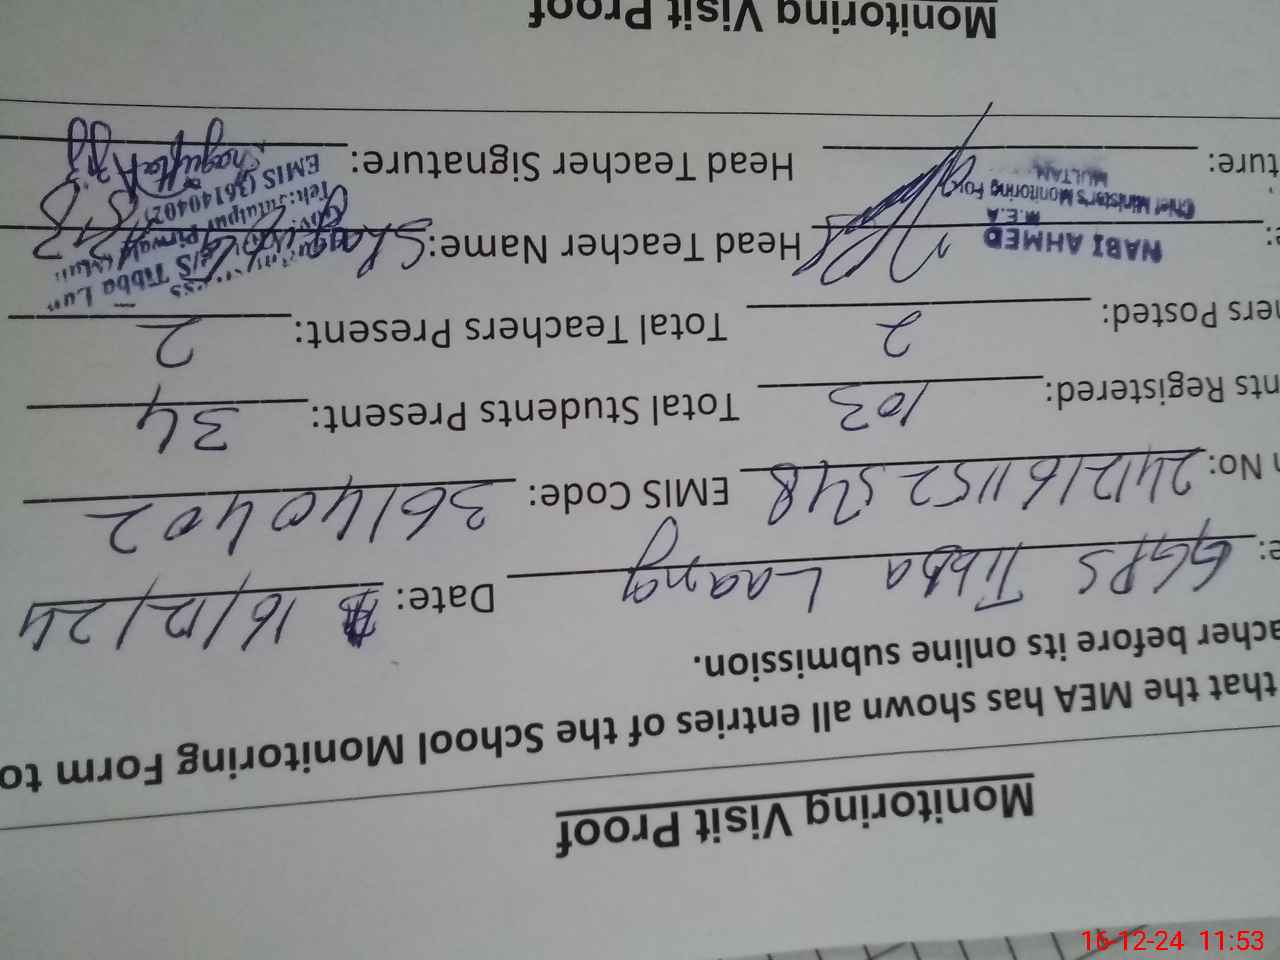 Monitoring Visit Proof
that the MEA has shown all entries of the School Monitoring Form to
acher before its online submission.
e: GGPS Tibba Laang Date: 16/12/24
No: 24121611525 EMIS Code: 36140402
nts Registered: 103 Total Students Present: 34
ers Posted: 2 Total Teachers Present: 2
e: NABI AHMED Head Teacher Name: Shagufta
M.E.A
Chief Minister's Monitoring Force
MULTAN
ture: Head Teacher Signature: Shagufta
Tibba
Teh: Jalalpur Pirwala
EMIS (36140402)
Monitoring Visit Proof
16-12-24 11:53